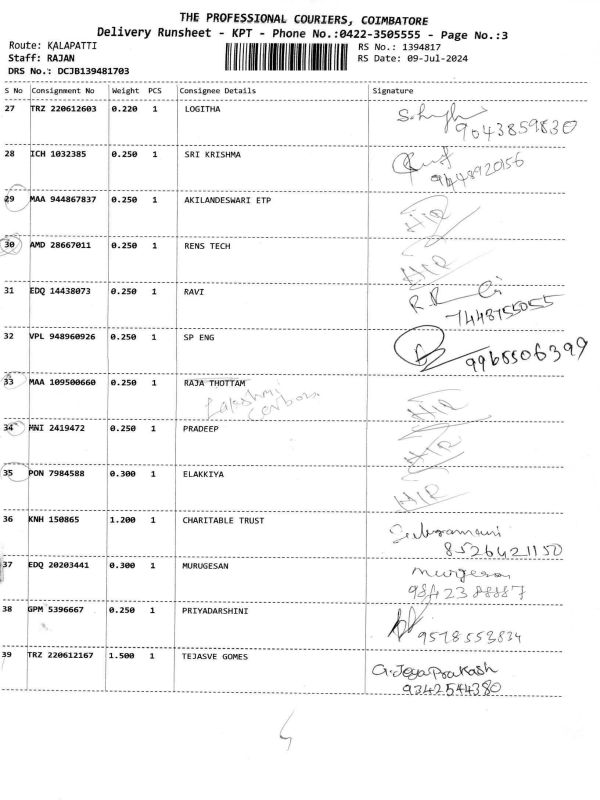 THE PROFESSIONAL COURIERS, COIMBATORE
Delivery Runsheet - KPT - Phone No.:0422-3505555 - Page No.:3
Route: KALAPATTI
Staff: RAJAN
DRS No.: DCJB139481703
RS No.: 1394817
RS Date: 09-Jul-2024
S No Consignment No Weight PCS Consignee Details Signature
27 TRZ 220612603 0.220 1 LOGITHA
9043859830
28 ICH 1032385 0.250 1 SRI KRISHMA
29 MAA 944867837 0.250 1 AKILANDESWARI ETP HIR
30 AMD 28667011 0.250 1 RENS TECH HIR
31 EDQ 14438073 0.250 1 RAVI
7448755055
32 VPL 948960926 0.250 1 SP ENG
9965506399
33 MAA 109500660 0.250 1 RAJA THOTTAM HIR
Lakshmi
34 MNI 2419472 0.250 1 PRADEEP HIR
35 PON 7984588 0.300 1 ELAKKIYA HIR
36 KNH 150865 1.200 1 CHARITABLE TRUST
8526421150
37 EDQ 20203441 0.300 1 MURUGESAN Murgesan
9842388887
38 GPM 5396667 0.250 1 PRIYADARSHINI
9578553834
39 TRZ 220612167 1.500 1 TEJASVE GOMES G.JegaPrakash
9342544380